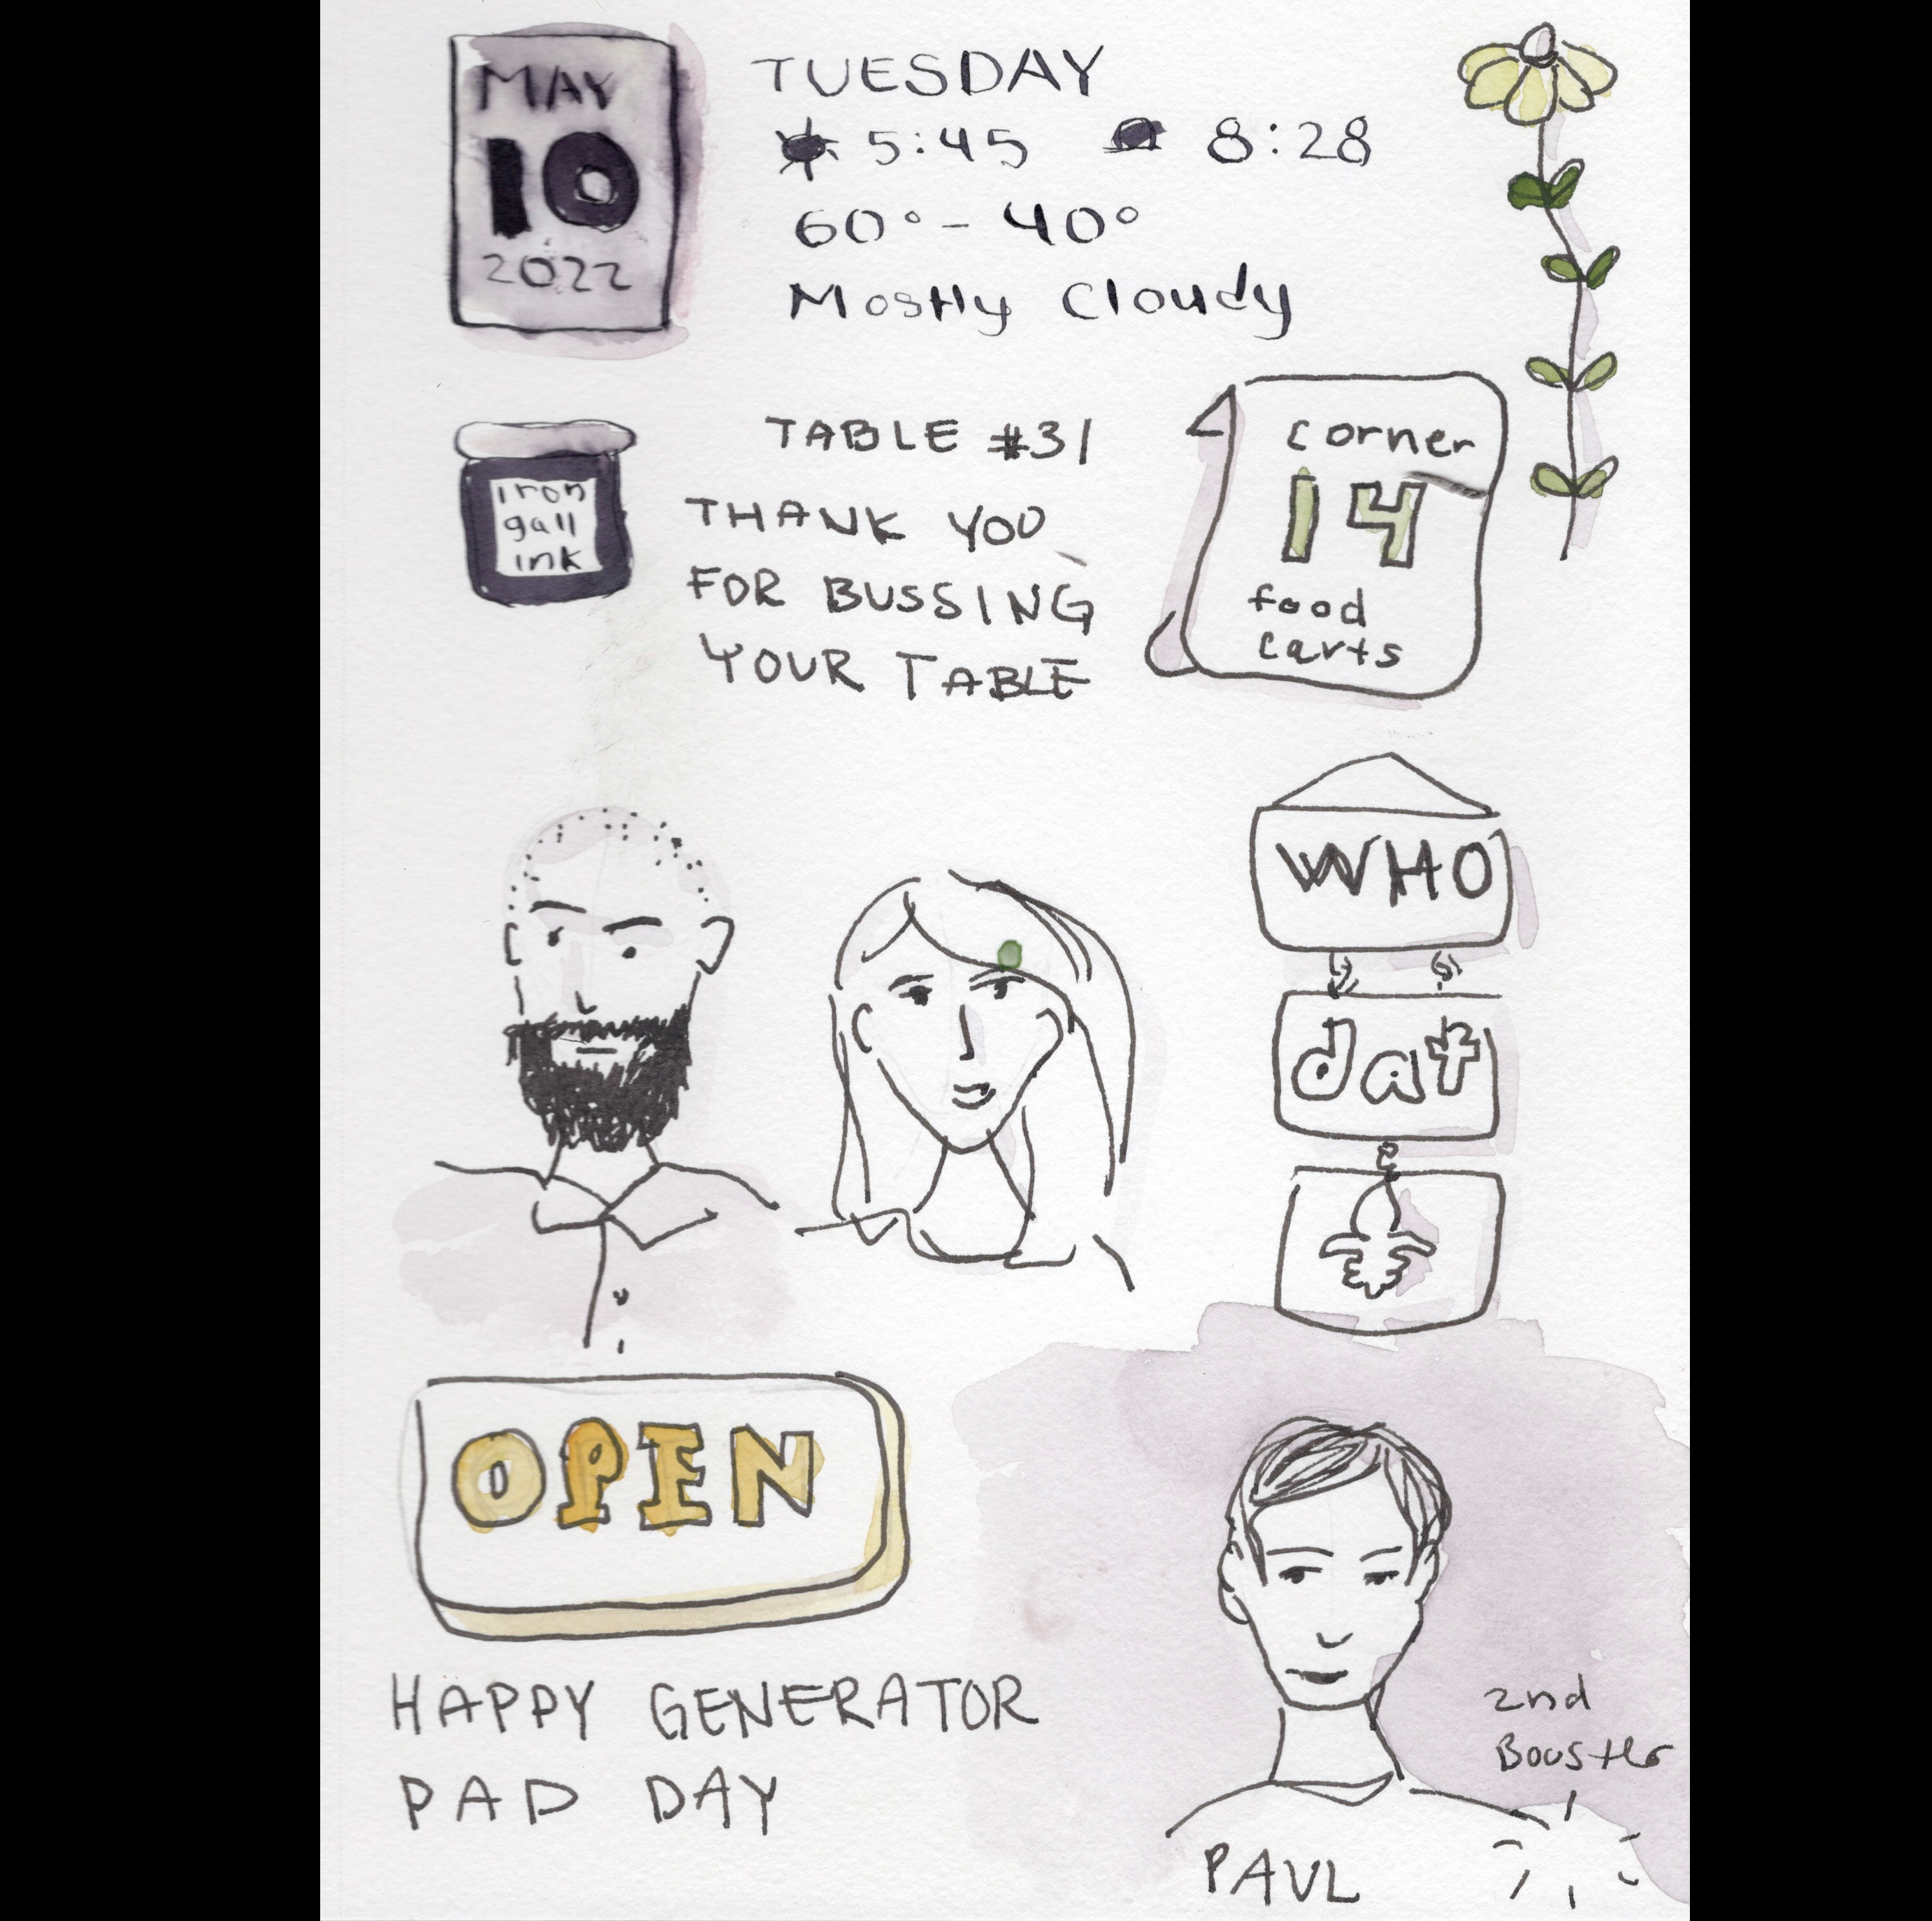 MAY
10
2022
TUESDAY
5:45 8:28
60° - 40°
Mostly Cloudy
iron
gall
ink
TABLE #31
THANK YOU
FOR BUSSING
YOUR TABLE
corner
14
food
carts
WHO
dat
OPEN
HAPPY GENERATOR
PAD DAY
2nd
Booster
PAUL